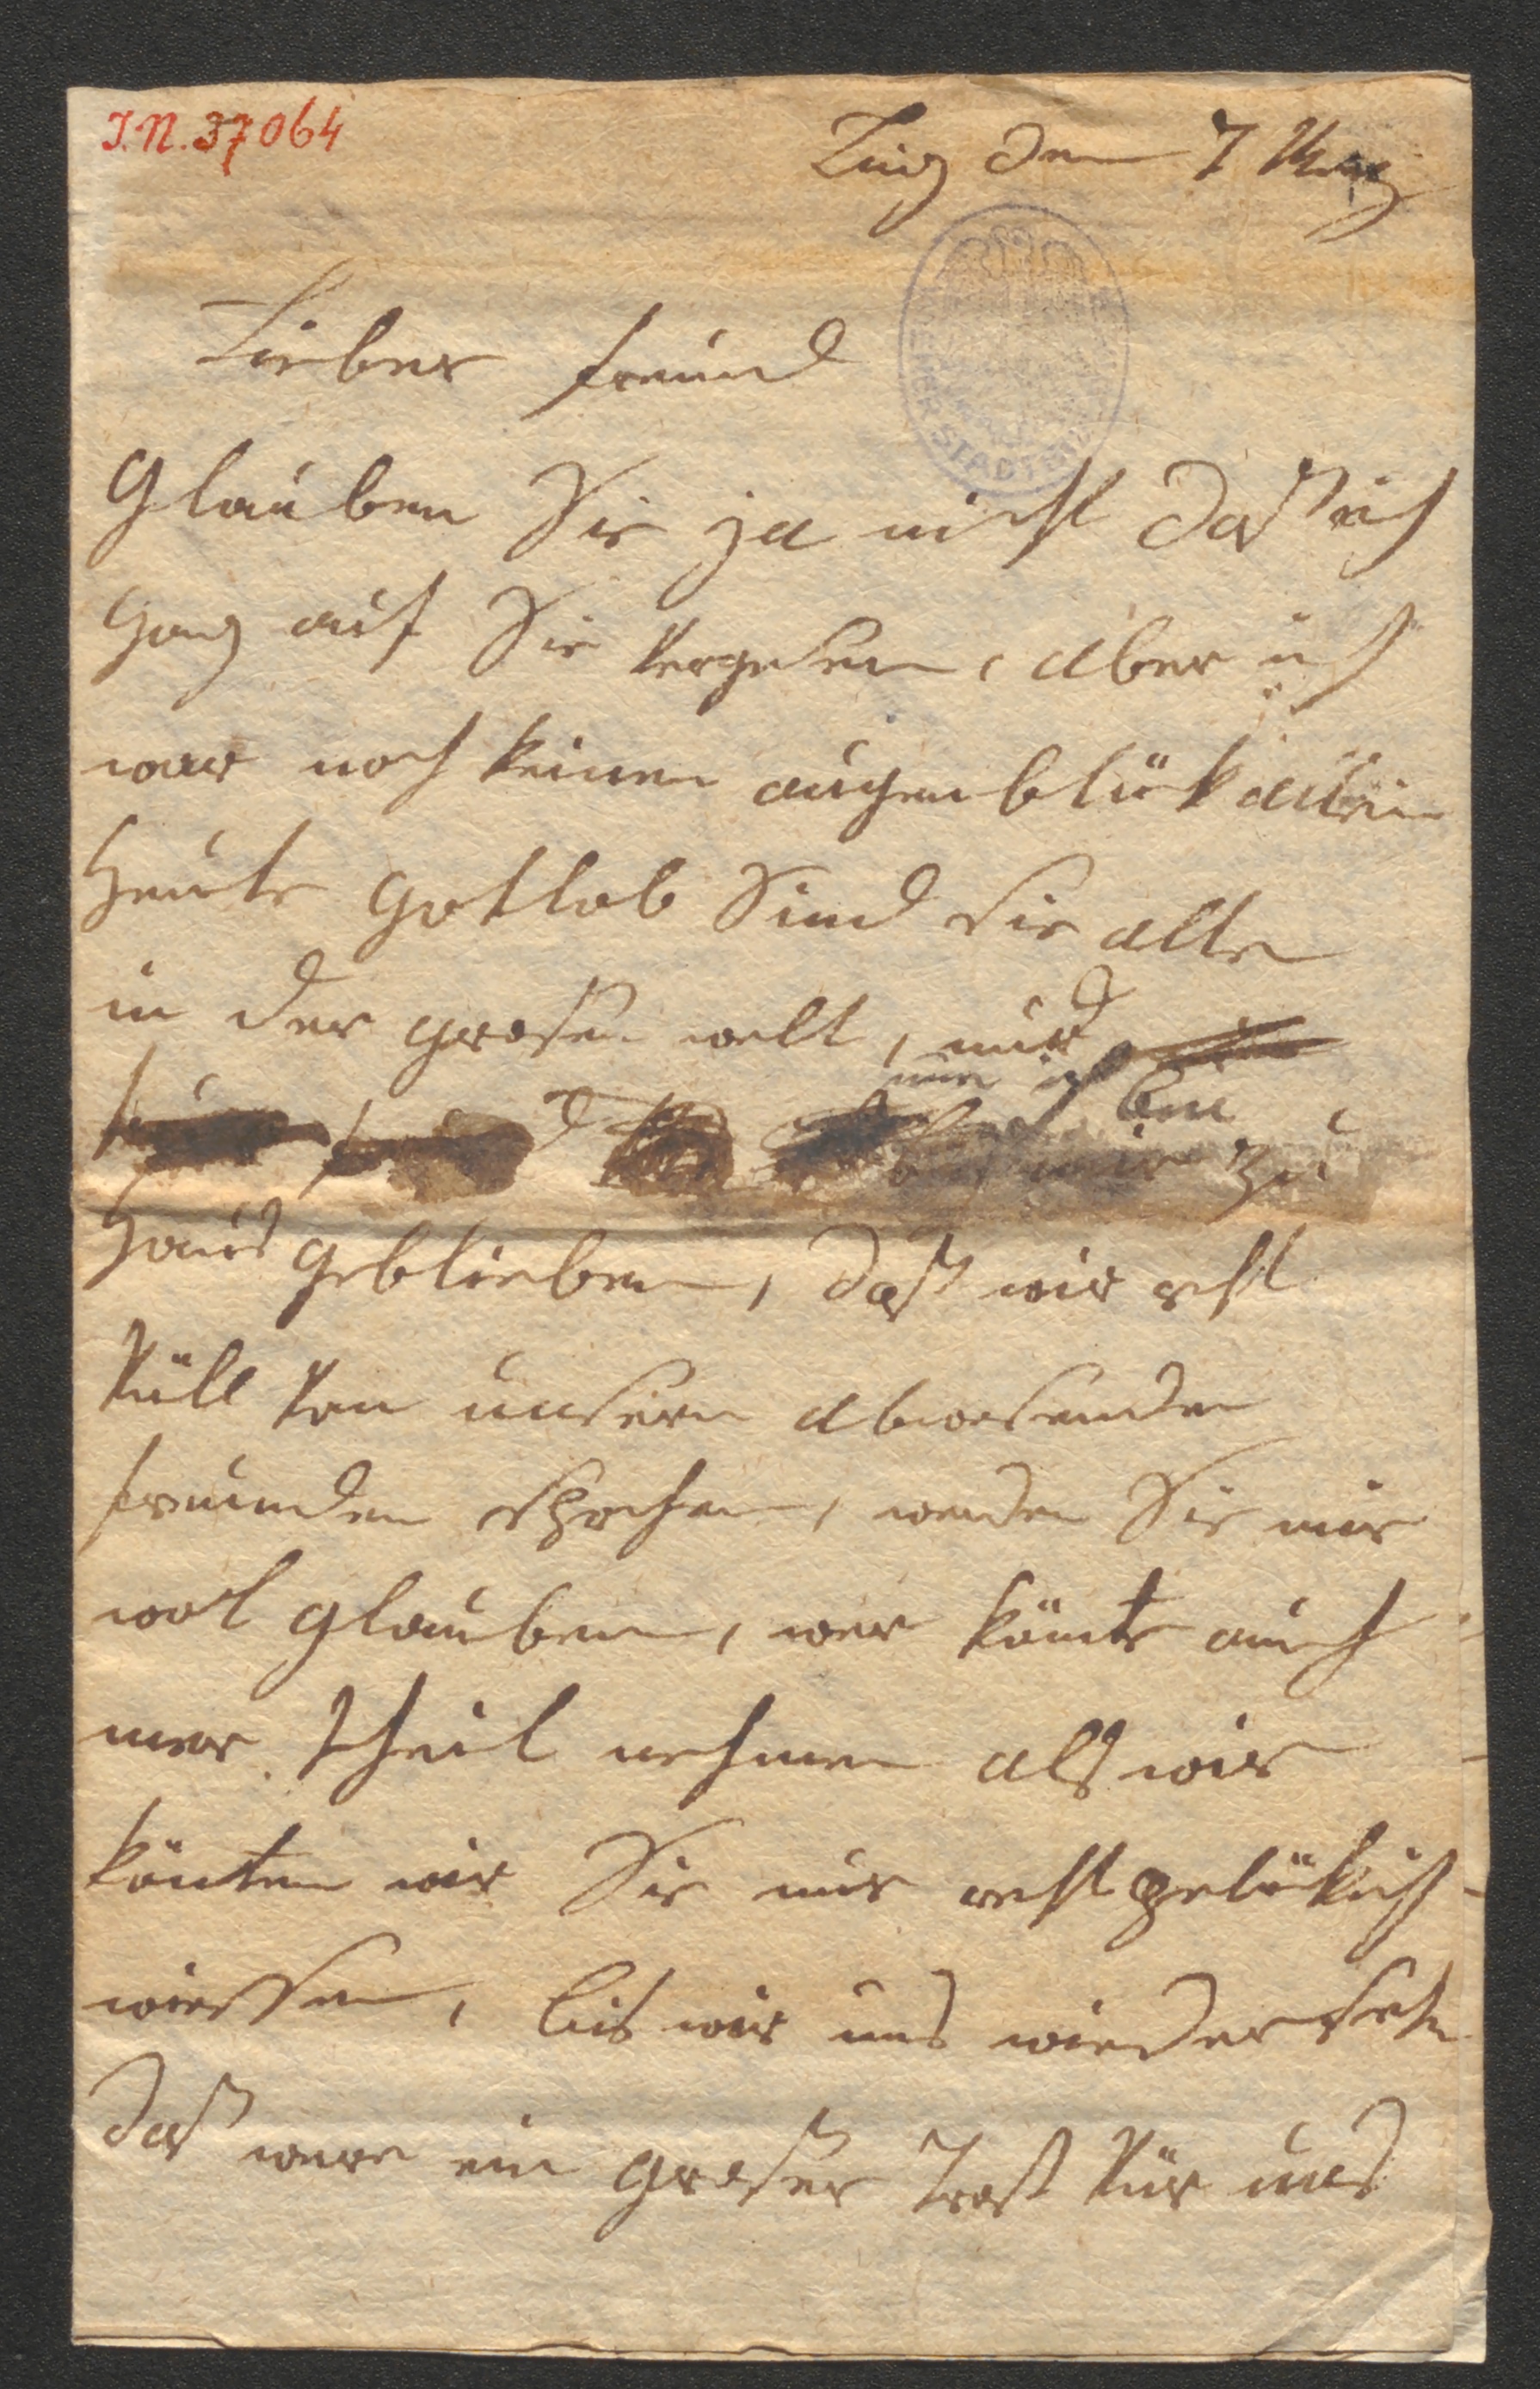 I.N. 37064
Linz den 7 Merz
Lieber freund
Glauben Sie ja nicht daß ich
ganz auf Sie vergesen, aber ich
war noch keinen augenblük allein
Heute gotlob Sind sie alle
in der grosen welt, und
nur ich bin
zu
Haus geblieben, daß wir recht
vüll von unsern abwesenden
freunden sprechen, werden Sie mir
wol glauben, wer könte auch
mer theil nehmen als wir
könten wir Sie nur recht gelüklich
wiessen, bis wir uns wieder sehen
daß were ein groser trost vür uns